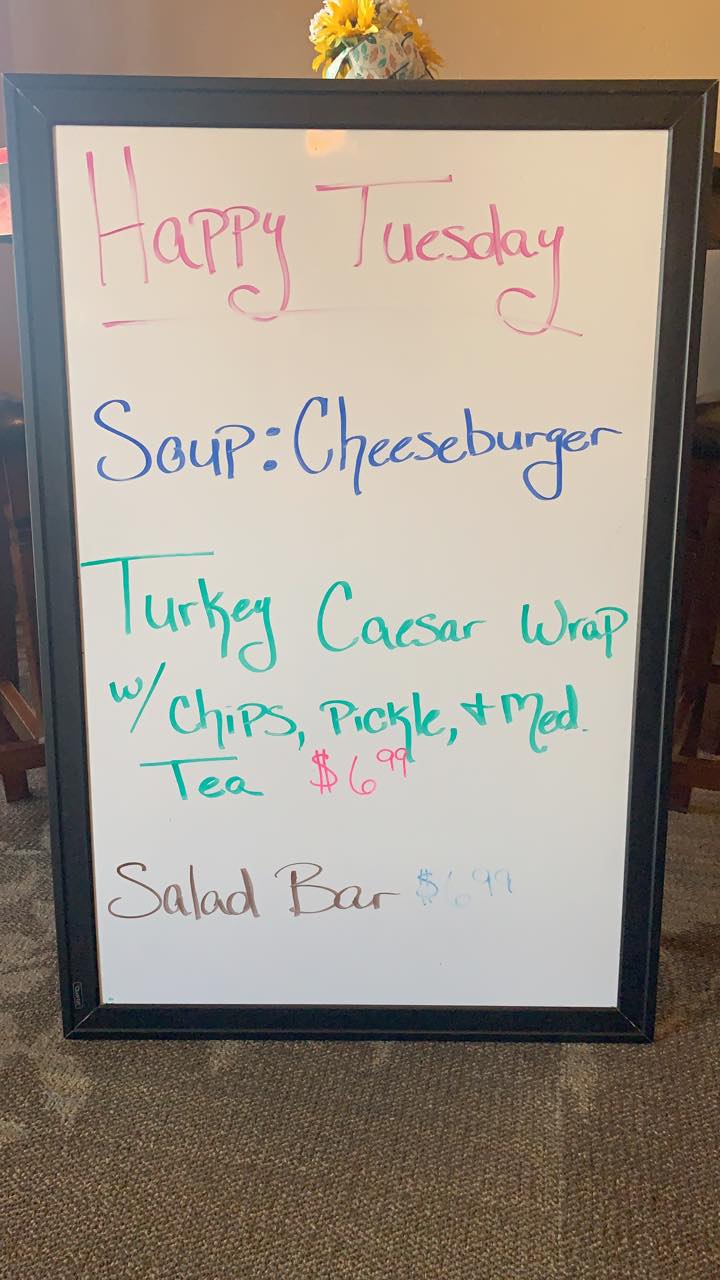 Happy Tuesday
Soup: Cheeseburger
Turkey Caesar Wrap
w/ Chips, Pickle, + Med.
Tea $6.99
Salad Bar $6.99